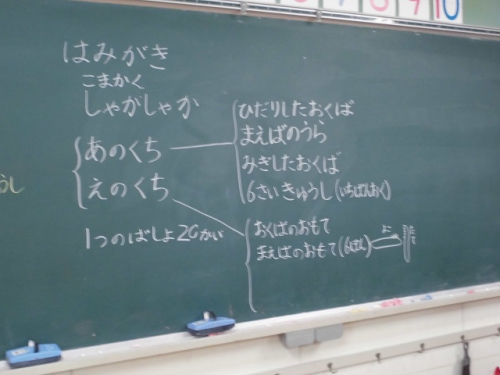 8 9 10
はみがき
こまかく
しゃかしゃか
あのくち
えのくち
1つのばしょ20かい
ひだりしたおくば
まえばのうら
みぎしたおくば
6さいきゅうし(いちばんおく)
おくばのおもて
まえばのおもて(
よこ